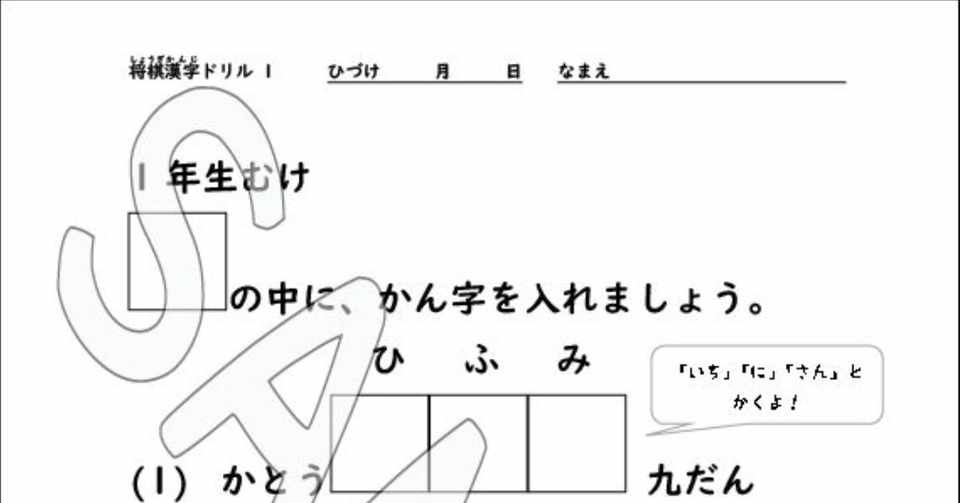 しょうぎかんじ
将棋漢字ドリル 1 ひづけ 月 日 なまえ
1 年生むけ
の中に、かん字を入れましょう。
ひ ふ み
「いち」「に」「さん」と
かくよ！
(1) かとう 九だん
SA